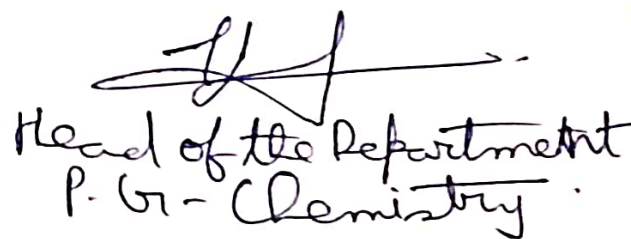 Head of the Department
P. G - Chemistry.